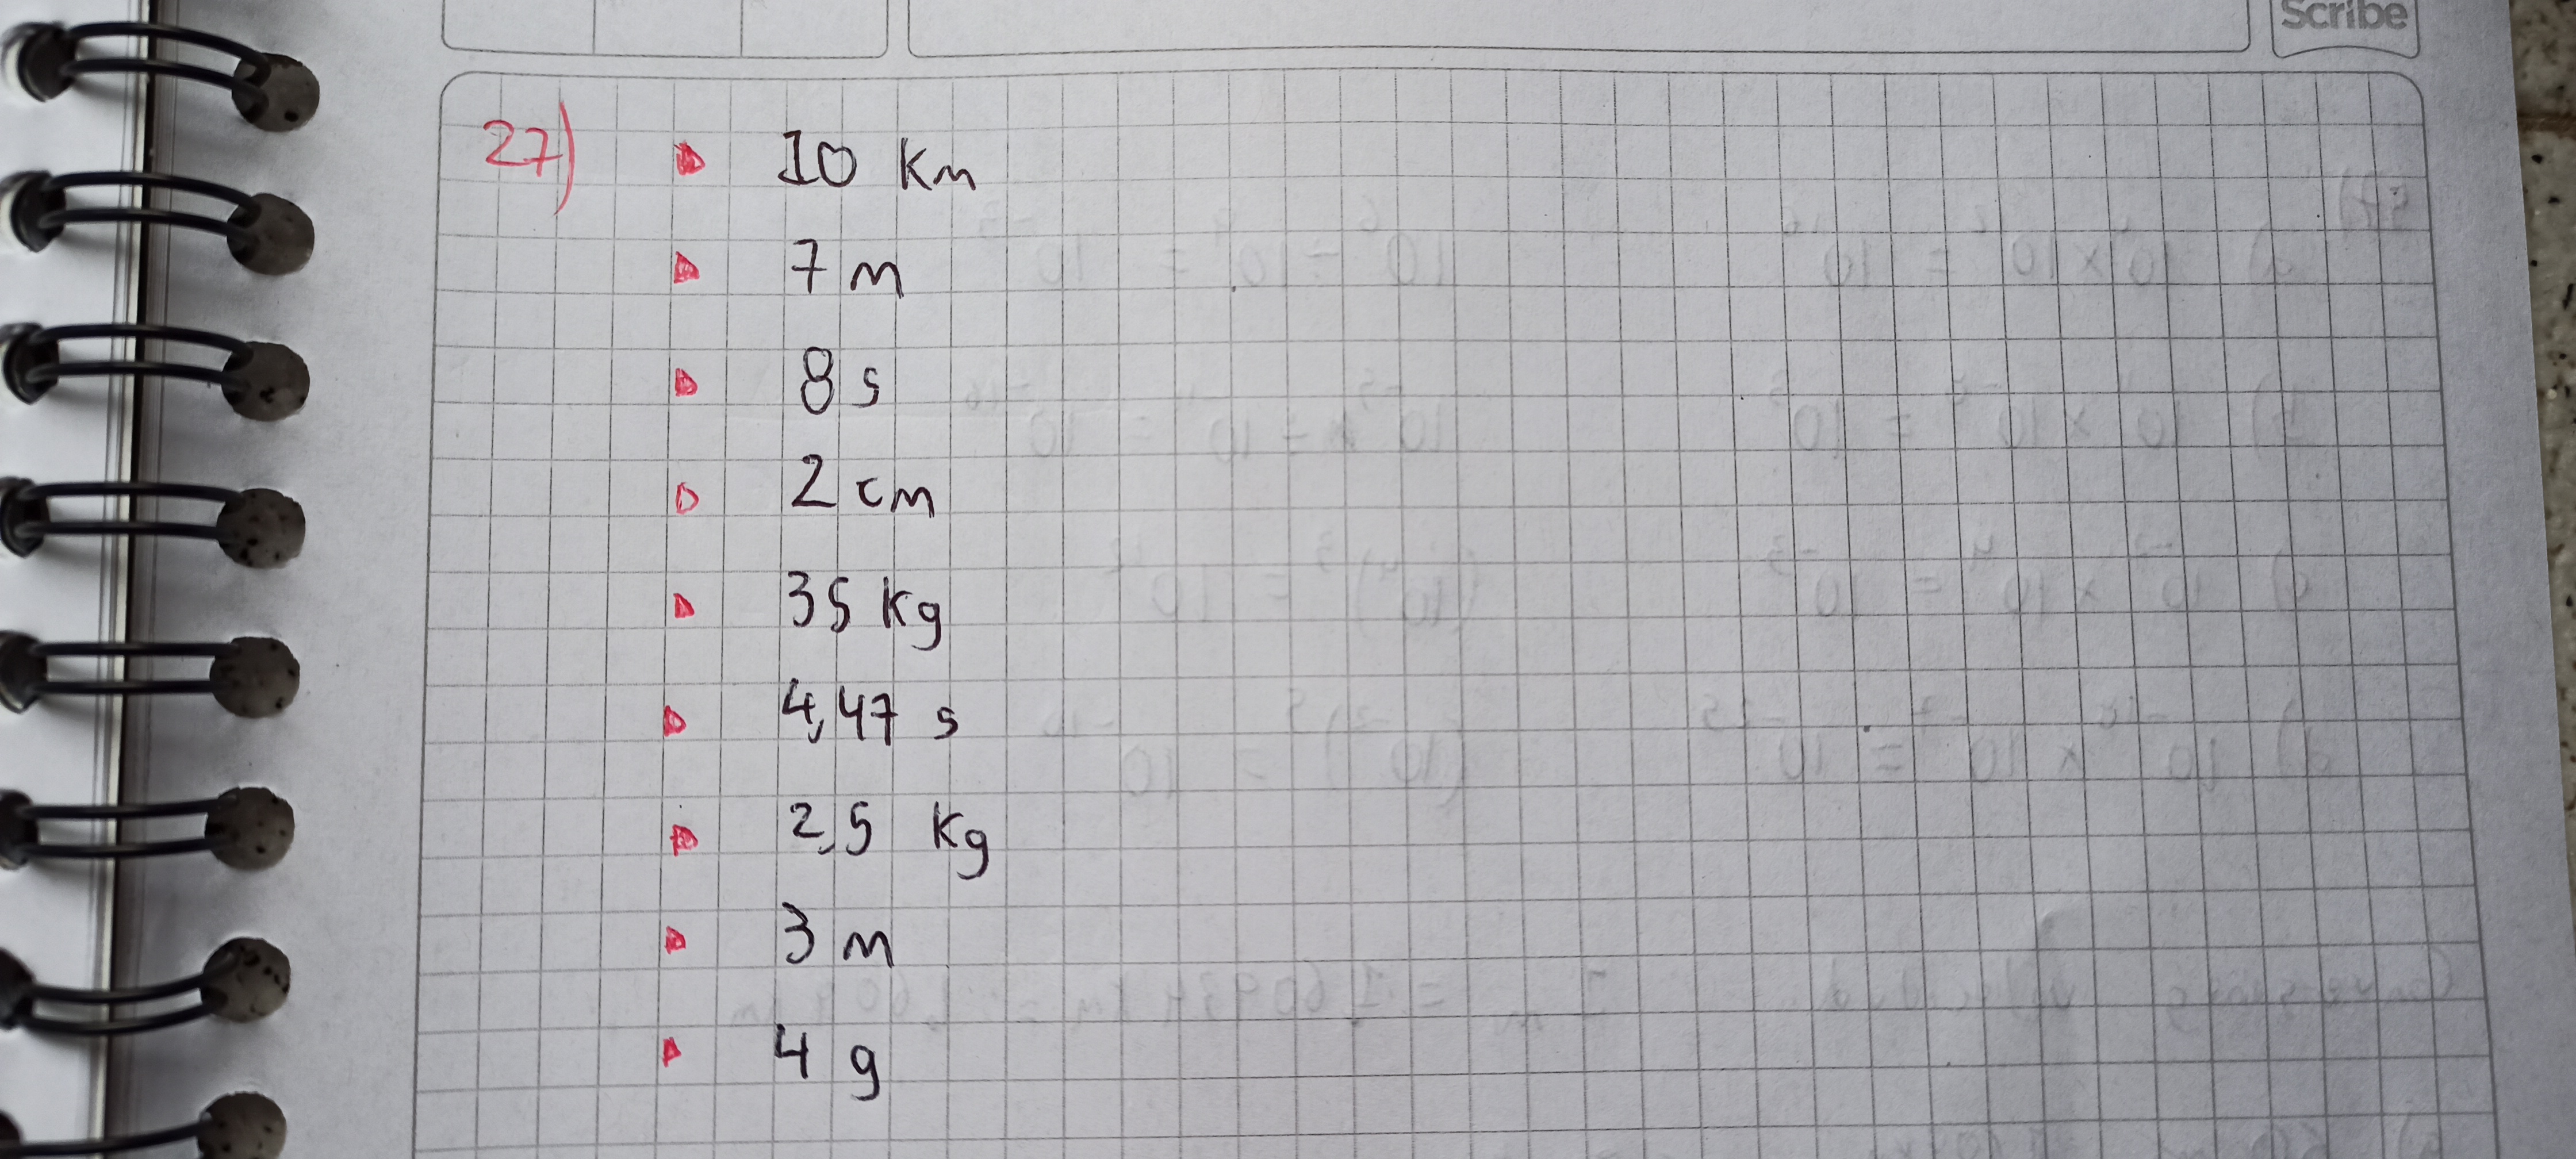 Scribe
27) 10 Km
7 m
8 s
2 cm
35 Kg
4,47 s
2,5 Kg
3 m
4 g